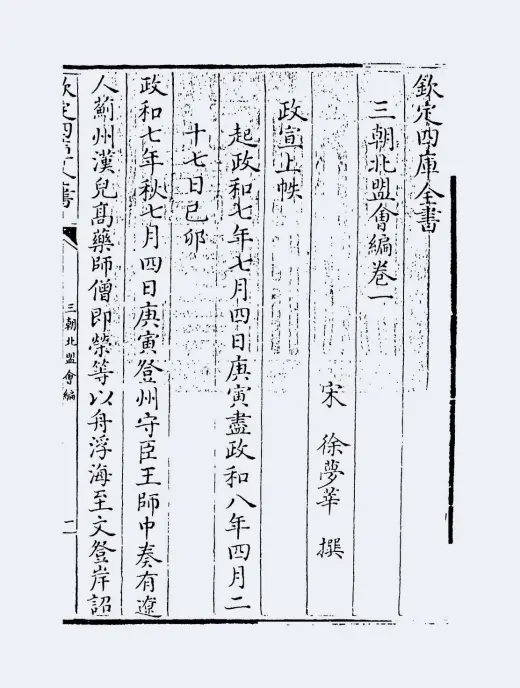 欽定四庫全書
三朝北盟會編卷一
宋 徐夢莘 撰
政宣上帙
起政和七年七月四日庚寅盡政和八年四月二
十七日己卯
政和七年秋七月四日庚寅登州守臣王師中奏有遼
人薊州漢兒高藥師僧即榮等以舟浮海至文登岸詔
欽定四庫全書
三朝北盟會編